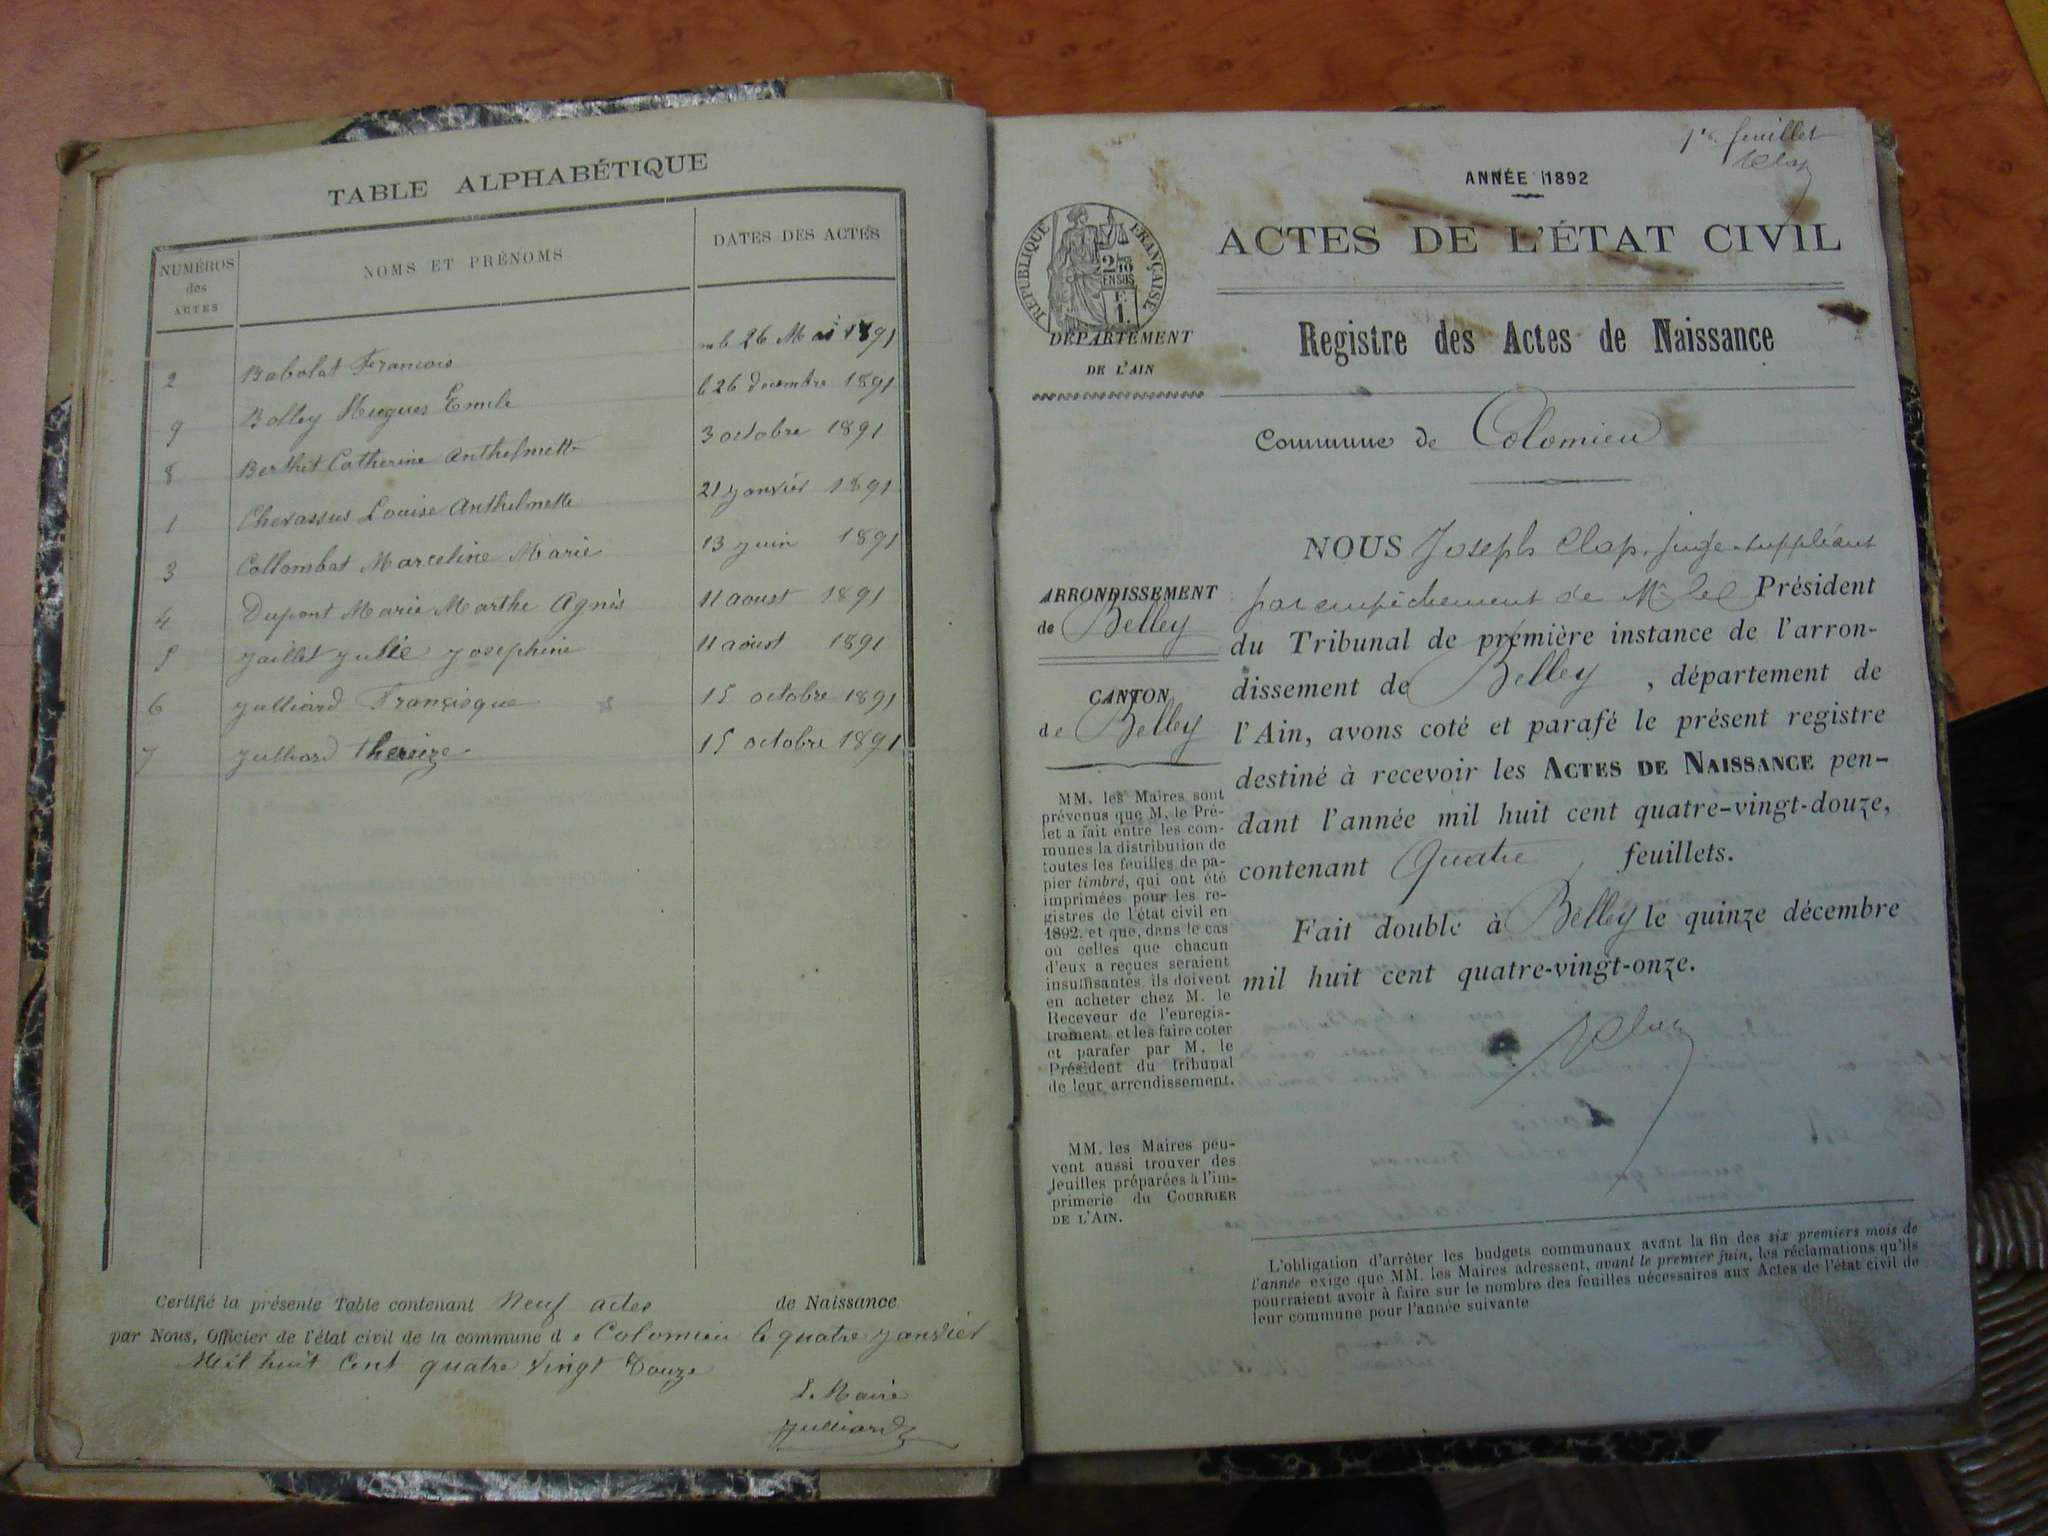 TABLE ALPHABÉTIQUE
NUMÉROS des ACTES
NOMS ET PRÉNOMS
DATES DES ACTES
2 Babolat Francois 26 Mai 1891
9 Bolley Hugues Emile 26 decembre 1891
8 Berthet Catherine Anthelmette 3 octobre 1891
1 Chevassus Louise Anthelmette 21 janvier 1891
3 Collombat Marceline Marie 13 juin 1891
4 Dupont Marie Marthe Agnès 11 aoust 1891
5 Jaillet Julie Josephine 11 aoust 1891
6 Julliard Françisque 15 octobre 1891
7 Julliard thereize 15 octobre 1891
Certifié la présente Table contenant Neuf actes de Naissance
par Nous, Officier de l'état civil de la commune de Colomieu le quatre janvier
Mil huit Cent quatre vingt Douze
Le Maire
Julliard
1er feuillet
Clap
ANNÉE 1892
ACTES DE L'ÉTAT CIVIL
RÉPUBLIQUE FRANÇAISE
2/10 EN SUS
F. 1.
DÉPARTEMENT
DE L'AIN
Registre des Actes de Naissance
Commune de Colomieu
ARRONDISSEMENT
de Belley
CANTON
de Belley
MM. les Maires sont
prévenus que M. le Pré-
fet a fait entre les com-
munes la distribution de
toutes les feuilles de pa-
pier timbré, qui ont été
imprimées pour les re-
gistres de l'état civil en
1892, et que, dans le cas
où celles que chacun
d'eux a reçues seraient
insuffisantes, ils doivent
en acheter chez M. le
Receveur de l'enregis-
trement et les faire coter
et parafer par M. le
Président du tribunal
de leur arrondissement.
MM. les Maires peu-
vent aussi trouver des
feuilles préparées à l'im-
primerie du COURRIER
DE L'AIN.
NOUS Joseph Clap, juge suppléant
par empêchement de Mr le Président
du Tribunal de première instance de l'arron-
dissement de Belley, département de
l'Ain, avons coté et parafé le présent registre
destiné à recevoir les ACTES DE NAISSANCE pen-
dant l'année mil huit cent quatre-vingt-douze,
contenant Quatre feuillets.
Fait double à Belley le quinze décembre
mil huit cent quatre-vingt-onze.
Clap
L'obligation d'arrêter les budgets communaux avant la fin des six premiers mois de
l'année exige que MM. les Maires adressent, avant le premier juin, les réclamations qu'ils
pourraient avoir à faire sur le nombre des feuilles nécessaires aux Actes de l'état civil de
leur commune pour l'année suivante